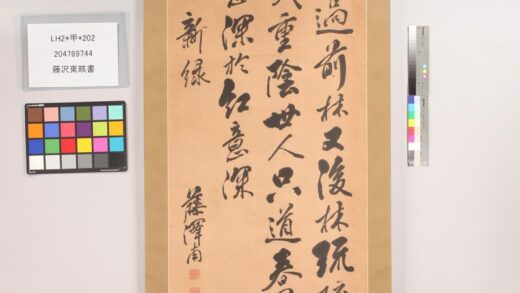 LH2*甲*202
204769744
藤沢東畡書
過前林又後林疏
重陰世人只道春
深於紅意深
新緑
藤澤甫